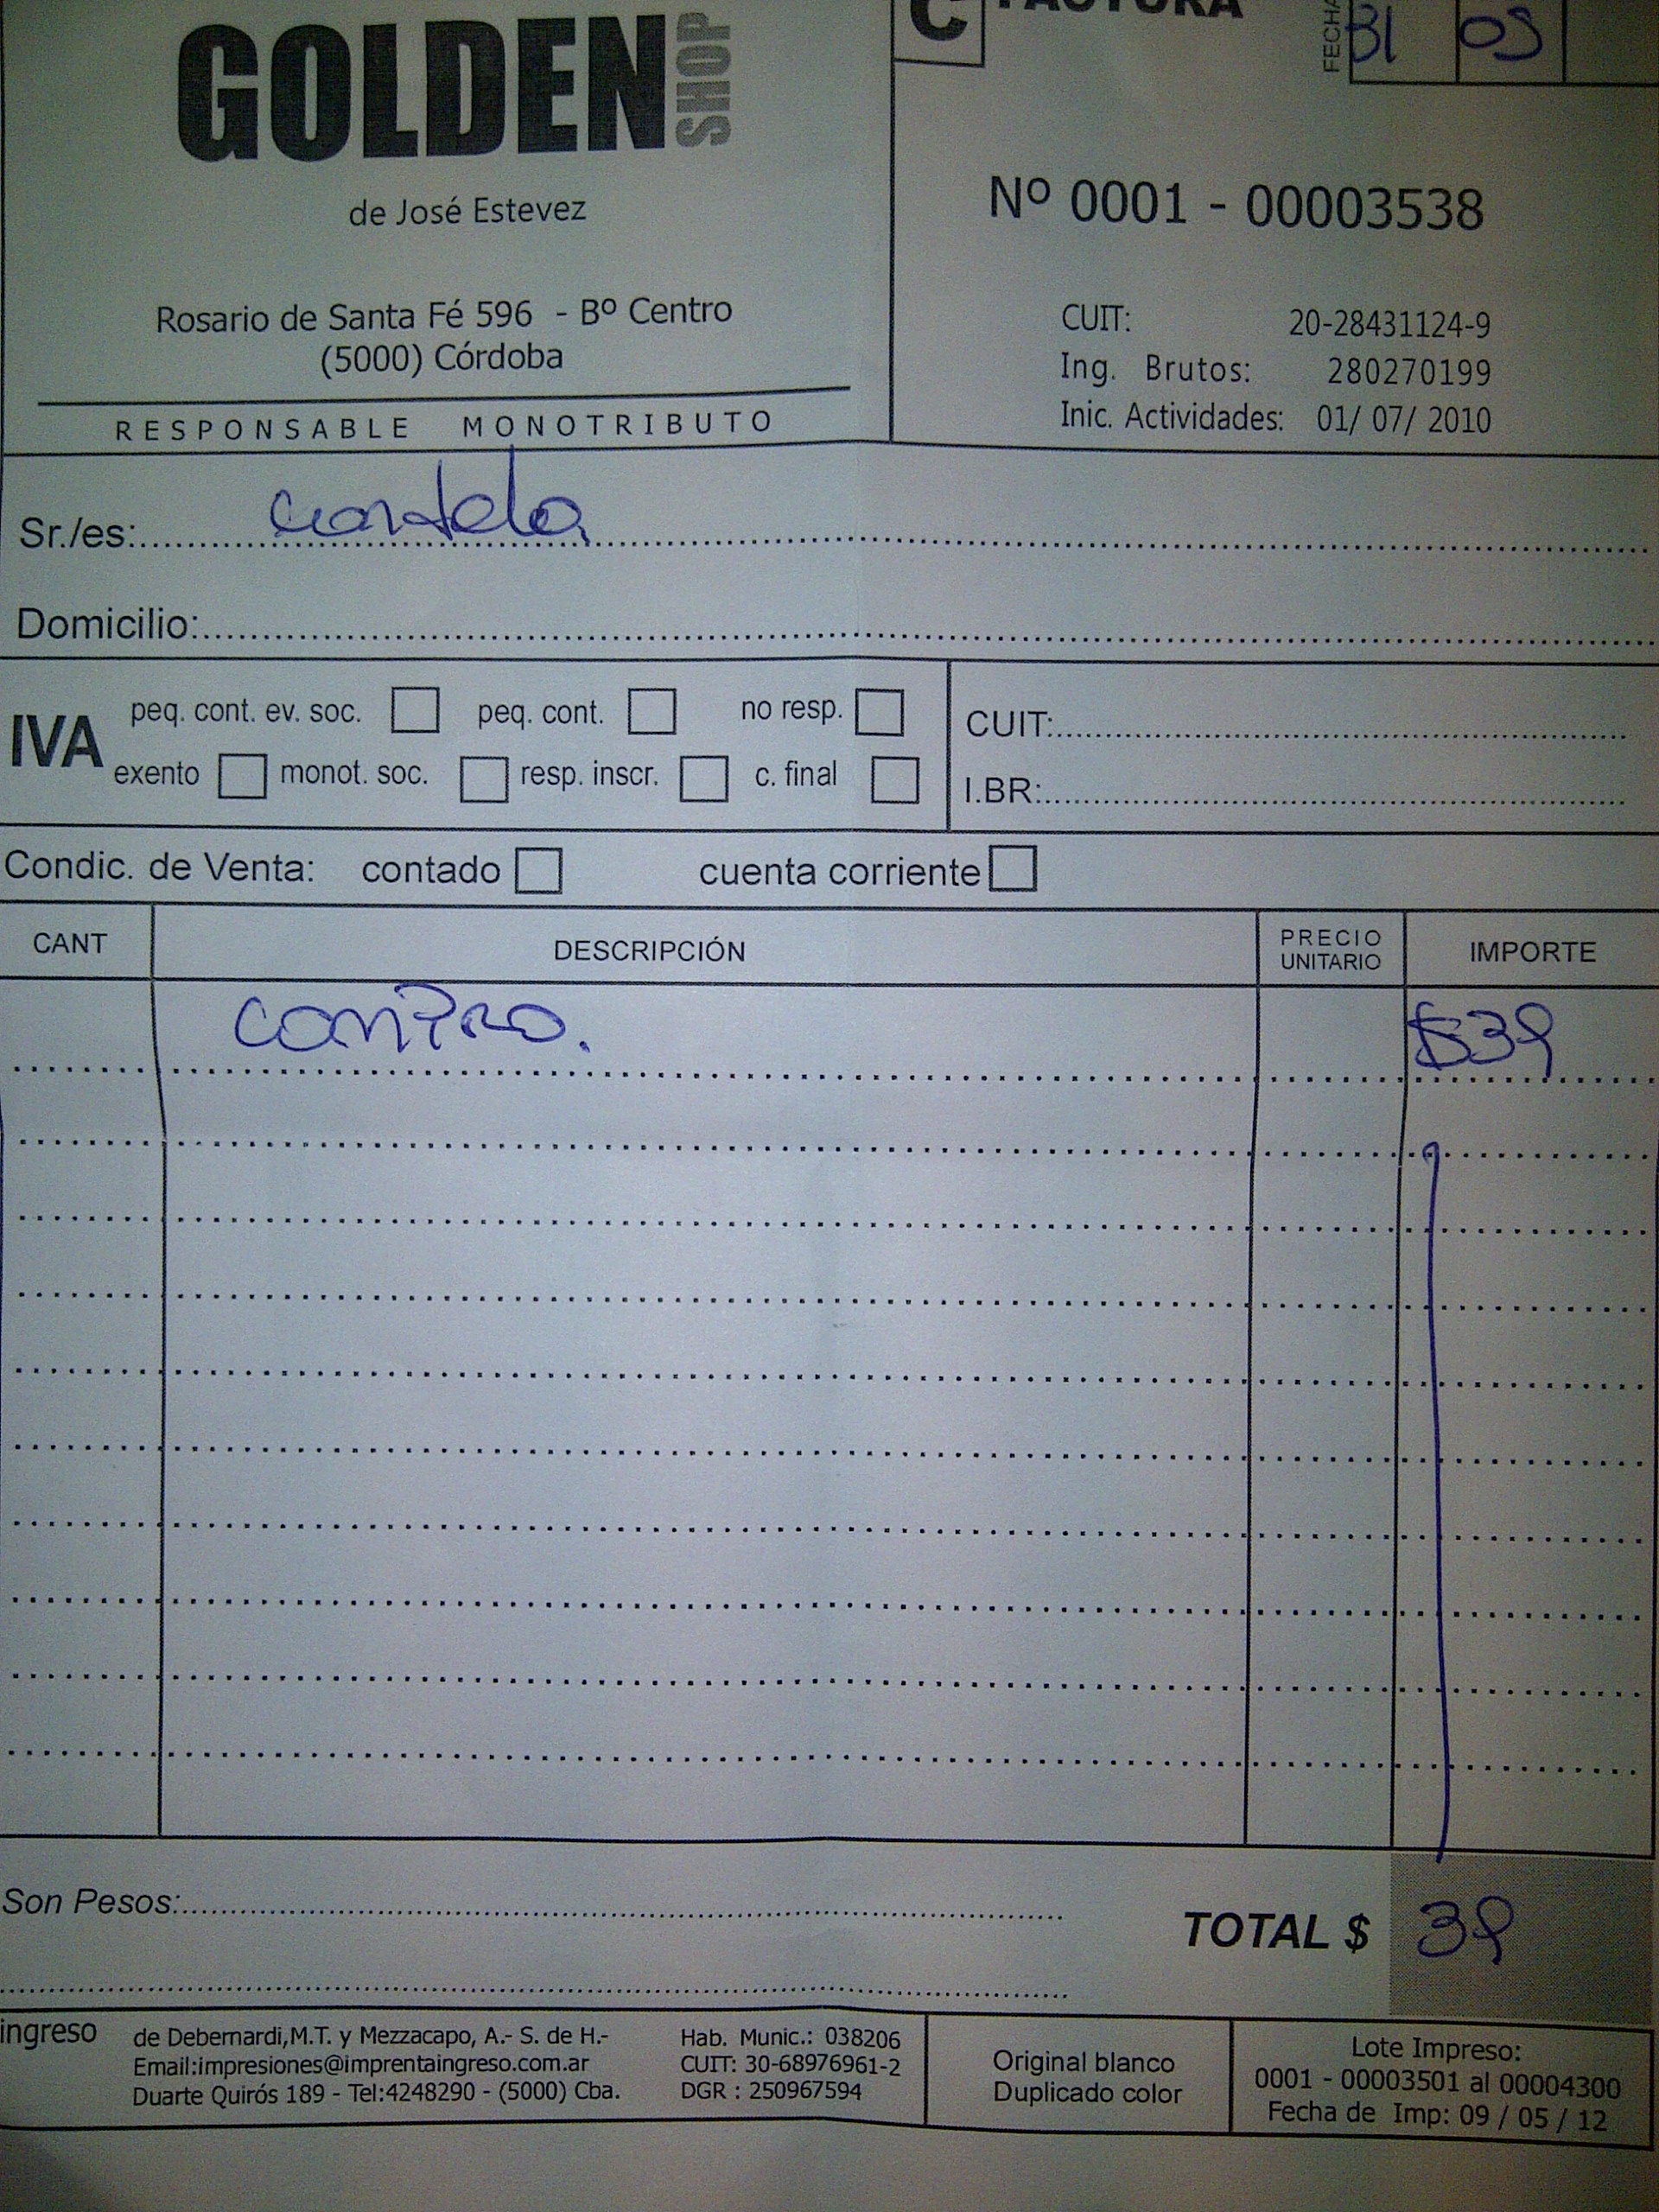 C FACTURA
FECHA 31 05
GOLDEN SHOP
de José Estevez
Nº 0001 - 00003538
Rosario de Santa Fé 596 - Bº Centro
(5000) Córdoba
CUIT: 20-28431124-9
Ing. Brutos: 280270199
Inic. Actividades: 01/ 07/ 2010
RESPONSABLE MONOTRIBUTO
Sr./es:
Domicilio:
IVA
peq. cont. ev. soc. peq. cont. no resp.
exento monot. soc. resp. inscr. c. final
CUIT:
I.BR:
Condic. de Venta: contado cuenta corriente
CANT DESCRIPCIÓN PRECIO UNITARIO IMPORTE
$39
Son Pesos:
TOTAL $ 39
ingreso
de Debernardi,M.T. y Mezzacapo, A.- S. de H.-
Email:impresiones@imprentaingreso.com.ar
Duarte Quirós 189 - Tel:4248290 - (5000) Cba.
Hab. Munic.: 038206
CUIT: 30-68976961-2
DGR : 250967594
Original blanco
Duplicado color
Lote Impreso:
0001 - 00003501 al 00004300
Fecha de Imp: 09 / 05 / 12